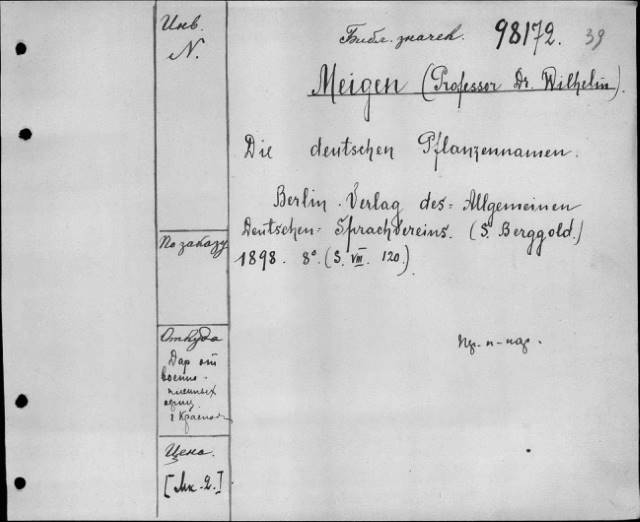 Инв.
N.
Библ. значек. 98172. 39
Meigen (Professor Dr. Wilhelm).
Die deutschen Pflanzennamen.
Berlin. Verlag des Allgemeinen
Deutschen Sprachvereins. (S. Berggold.)
1898. 8° (S. VIII. 120.)
По заказу
Откуда
Дар от
военно-
пленных
г. Красно
Цена.
[Мк. 2.]